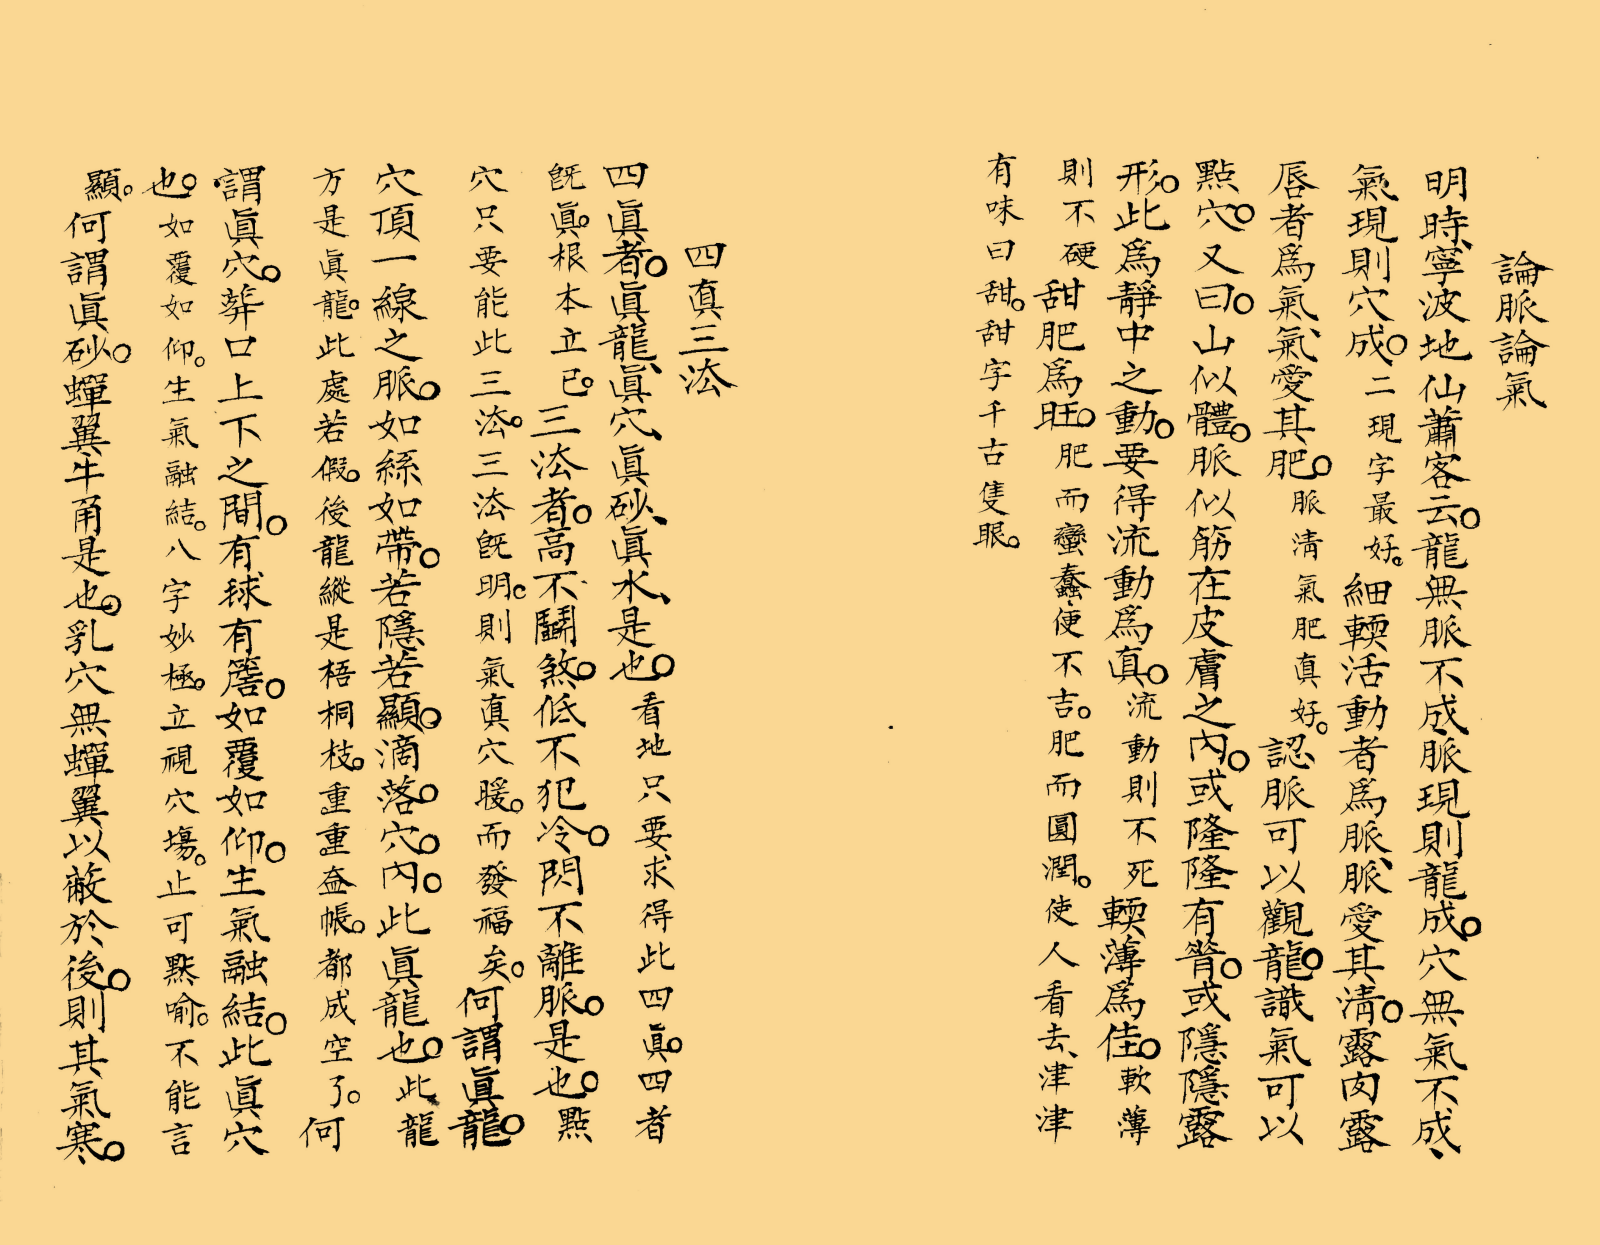 論脈論氣
明時、寧波地仙蕭客云。龍無脈不成、脈現則龍成。穴無氣不成、
氣現則穴成。二現字最好。細輭活動者為脈、脈愛其清。露肉露
唇者為氣、氣愛其肥。脈清氣肥真好。認脈可以觀龍。識氣可以
點穴。又曰。山似體。脈似筋在皮膚之內。或隆隆有脊。或隱隱露
形。此為靜中之動。要得流動為真。流動則不死輭薄為佳。軟薄
則不硬甜肥為旺。肥而蠻蠢、便不吉。肥而圓潤。使人看去、津津
有味曰甜。甜字千古隻眼。
四真三法
四眞者。眞龍、眞穴、眞砂、眞水、是也。看地只要求得此四眞。四者
既眞。根本立已。三法者。高不鬭煞。低不犯冷。閃不離脈。是也。點
穴只要能此三法。三法既明。則氣真穴暖。而發福矣。何謂眞龍。
穴頂一線之脈。如絲如帶。若隱若顯。滴落。穴。內。此眞龍也。此龍
方是眞龍。此處若假。後龍縱是梧桐枝。重重盖帳。都成空了。何
謂眞穴。葬口上下之間。有毬有簷。如覆如仰。生氣融結。此眞穴
也。如覆如仰。生氣融結。八字妙極。立視穴塲。止可默喻。不能言
顯。何謂眞砂。蟬翼牛角是也。乳穴無蟬翼以蔽於後。則其氣寒。